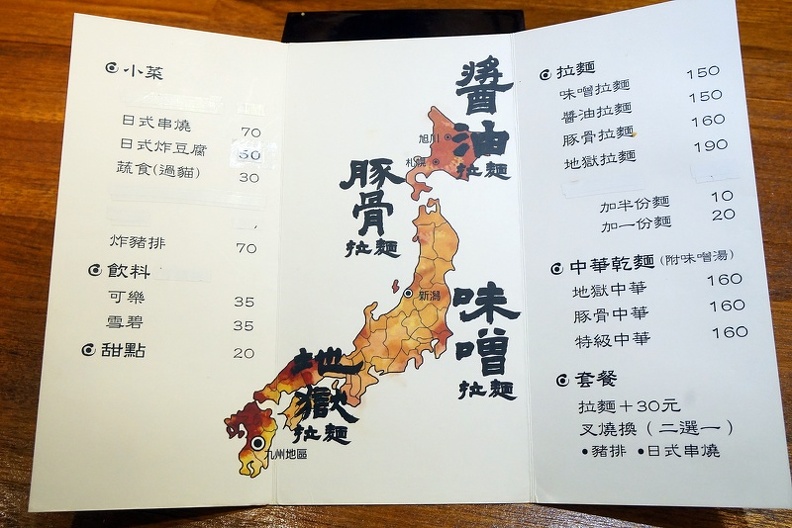 小菜
日式串燒 70
日式炸豆腐 50
蔬食(過貓) 30
炸豬排 70
飲料
可樂 35
雪碧 35
甜點 20
醬油
拉麵
旭川
札幌
豚骨
拉麵
新潟
味噌
拉麵
地獄
拉麵
九州地區
拉麵
味噌拉麵 150
醬油拉麵 150
豚骨拉麵 160
地獄拉麵 190
加半份麵 10
加一份麵 20
中華乾麵(附味噌湯)
地獄中華 160
豚骨中華 160
特級中華 160
套餐
拉麵＋30元
叉燒換（二選一）
•豬排 •日式串燒